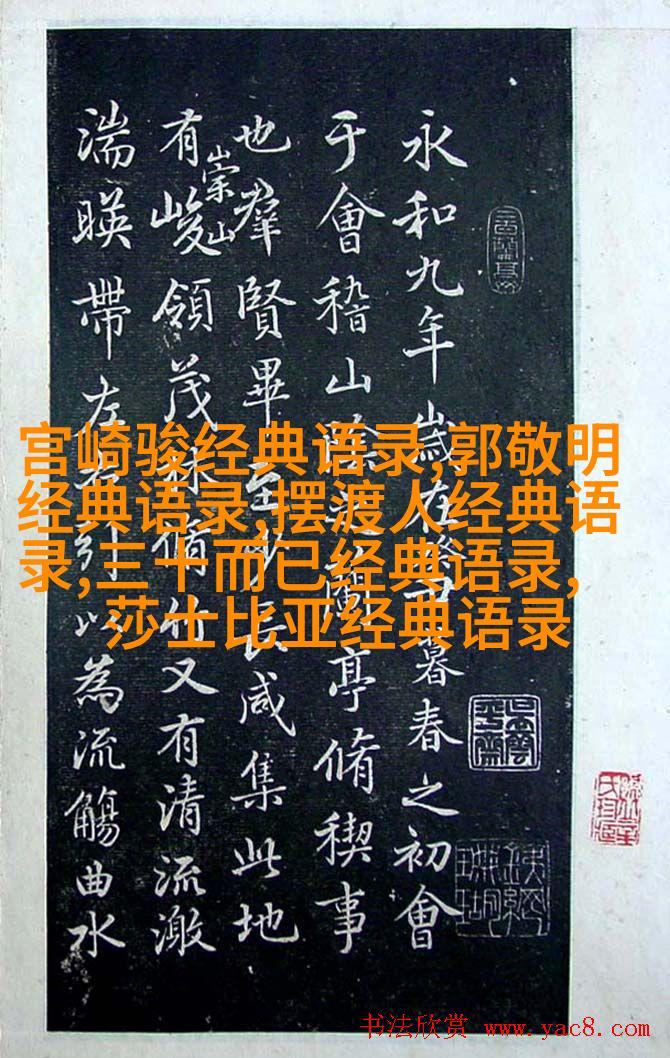 永和九年歲在暮春之初會
于會稽山陰之蘭亭脩稧事
也羣賢畢至少長咸集此地
有崇山峻領茂林脩竹又有清流激
湍暎帶左右引以為流觴曲水
宫崎骏经典语录,郭敬明
经典语录,摆渡人经典语
录,三十而已经典语录,
莎士比亚经典语录
书法欣赏 www.yac8.com